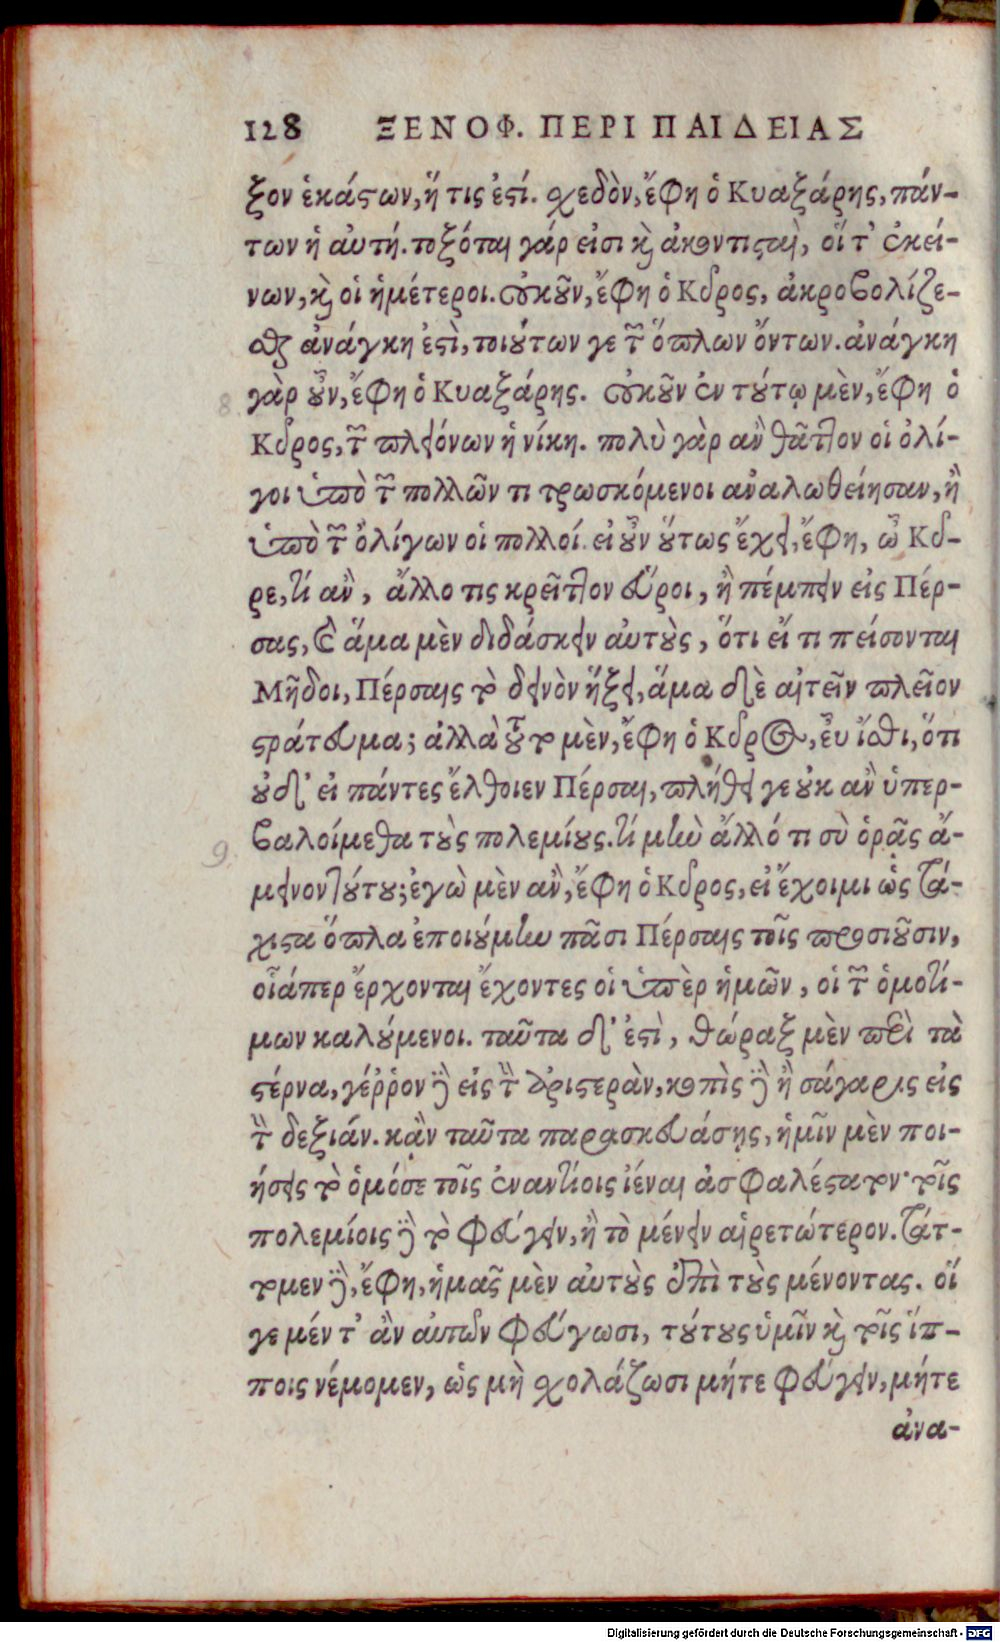 128 ΞΕΝΟΦ. ΠΕΡΙ ΠΑΙΔΕΙΑΣ
ξον ἑκάστων, ἥ τις ἐστί. σχεδὸν, ἔφη ὁ Κυαξάρης, πάν-
των ἡ αὐτή. τοξόται γάρ εἰσι καὶ ἀκοντισταὶ, οἵ τ' ἐκεί-
νων, καὶ οἱ ἡμέτεροι. οὐκοῦν, ἔφη ὁ Κῦρος, ἀκροβολίζε-
σθαι ἀνάγκη ἐστὶ, τοιούτων γε τῶν ὅπλων ὄντων. ἀνάγκη
8. γὰρ οὖν, ἔφη ὁ Κυαξάρης. οὐκοῦν ἐν τούτῳ μὲν, ἔφη ὁ
Κῦρος, τῶν πλειόνων ἡ νίκη. πολὺ γὰρ ἂν θᾶττον οἱ ὀλί-
γοι ὑπὸ τῶν πολλῶν τιτρωσκόμενοι ἀναλωθείησαν, ἢ
ὑπὸ τῶν ὀλίγων οἱ πολλοί. εἰ οὖν οὕτως ἔχει, ἔφη, ὦ Κῦ-
ρε, τί ἂν, ἄλλο τις κρεῖττον εὕροι, ἢ πέμπειν εἰς Πέρ-
σας, καὶ ἅμα μὲν διδάσκειν αὐτοὺς, ὅτι εἴ τι πείσονται
Μῆδοι, Πέρσαις τὸ δεινὸν ἥξει, ἅμα δὲ αἰτεῖν πλεῖον
στράτευμα; ἀλλὰ τοῦτο μὲν, ἔφη ὁ Κῦρος, εὖ ἴσθι, ὅτι
οὐδ' εἰ πάντες ἔλθοιεν Πέρσαι, πλήθει γε οὐκ ἂν ὑπερ-
9. βαλοίμεθα τοὺς πολεμίους. τί μὴν ἄλλό τι σὺ ὁρᾷς ἄ-
μεινον τούτου; ἐγὼ μὲν ἂν, ἔφη ὁ Κῦρος, εἰ ἔχοιμι ὡς τά-
χιστα ὅπλα ἐποιούμην πᾶσι Πέρσαις τοῖς προσιοῦσιν,
οἷάπερ ἔρχονται ἔχοντες οἱ ὑπὲρ ἡμῶν, οἱ τῶν ὁμοτί-
μων καλούμενοι. ταῦτα δ' ἐστὶ, θώραξ μὲν περὶ τὰ
στέρνα, γέῤῥον δὲ εἰς τὴν ἀριστερὰν, κοπὶς δὲ ἢ σάγαρις εἰς
τὴν δεξιάν. κᾂν ταῦτα παρασκευάσῃς, ἡμῖν μὲν ποι-
ήσεις τὸ ὁμόσε τοῖς ἐναντίοις ἰέναι ἀσφαλέστατον· τοῖς
πολεμίοις δὲ τὸ φεύγειν, ἢ τὸ μένειν αἱρετώτερον. τάτ-
τομεν δὲ, ἔφη, ἡμᾶς μὲν αὐτοὺς ἐπὶ τοὺς μένοντας. οἵ
γε μέν τ' ἂν αὐτῶν φεύγωσι, τούτους ὑμῖν καὶ τοῖς ἵπ-
ποις νέμομεν, ὡς μὴ σχολάζωσι μήτε φεύγειν, μήτε
ἀνα-
Digitalisierung gefördert durch die Deutsche Forschungsgemeinschaft - DFG